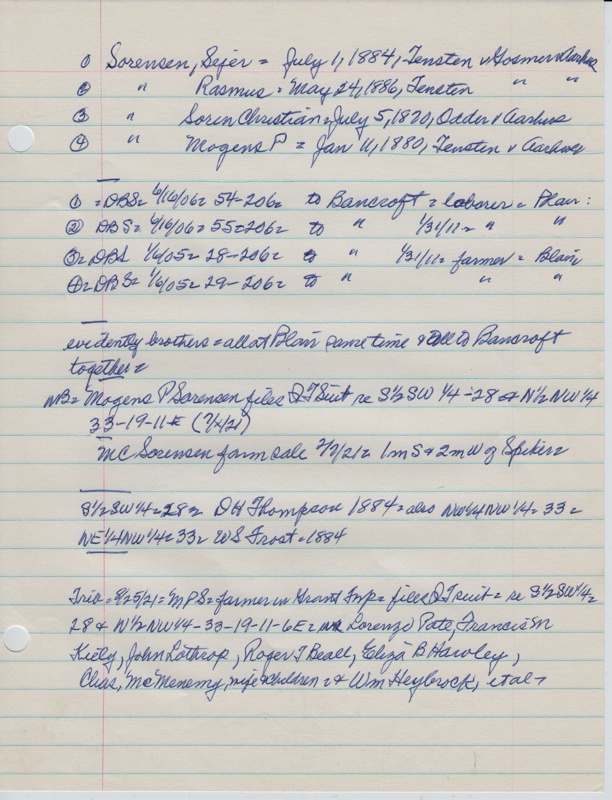 ① Sorensen, Sejer = July 1, 1884, Tensten v Gosmer v Aarhus
② " Rasmus = May 24, 1886, Tensten " "
③ " Soren Christian = July 5, 1870, Odder v Aarhus
④ " Mogens P = Jan 11, 1880, Tensten v Aarhus
① = DBS = 6/16/06 = 54-206 = to Bancroft = laborer = Blair:
② DBS = 6/16/06 = 55-206 = to " 1/31/11 = " "
③ = DBS 1/6/05 = 28-206 = to " 1/31/11 = farmer = Blair
④ = DBS = 1/6/05 = 29-206 = to " " "
evidently brothers = all at Blair same time & all to Bancroft
together =
NB = Mogens P Sorensen files QT Suit re S½SW¼-28 & N½NW¼
33-19-11E
MC Sorensen farm sale 2/7/21 = 1mS & 2mW of Spiker =
S½SW¼=28= DH Thompson 1884 = also NW¼NW¼=33=
NE¼NW¼=33= WS Frost = 1884
8/25/21 = MPS = farmer in Grant Twp = files QT suit = re S½SW¼=
28 & N½NW¼-33-19-11-6E = Lorenzo Pate, Francis M
Kiely, John Lothrop, Roger T Beall, Eliza B Hawley,
Chas, McMenemy, wife & children = & Wm Heybrock, et al =